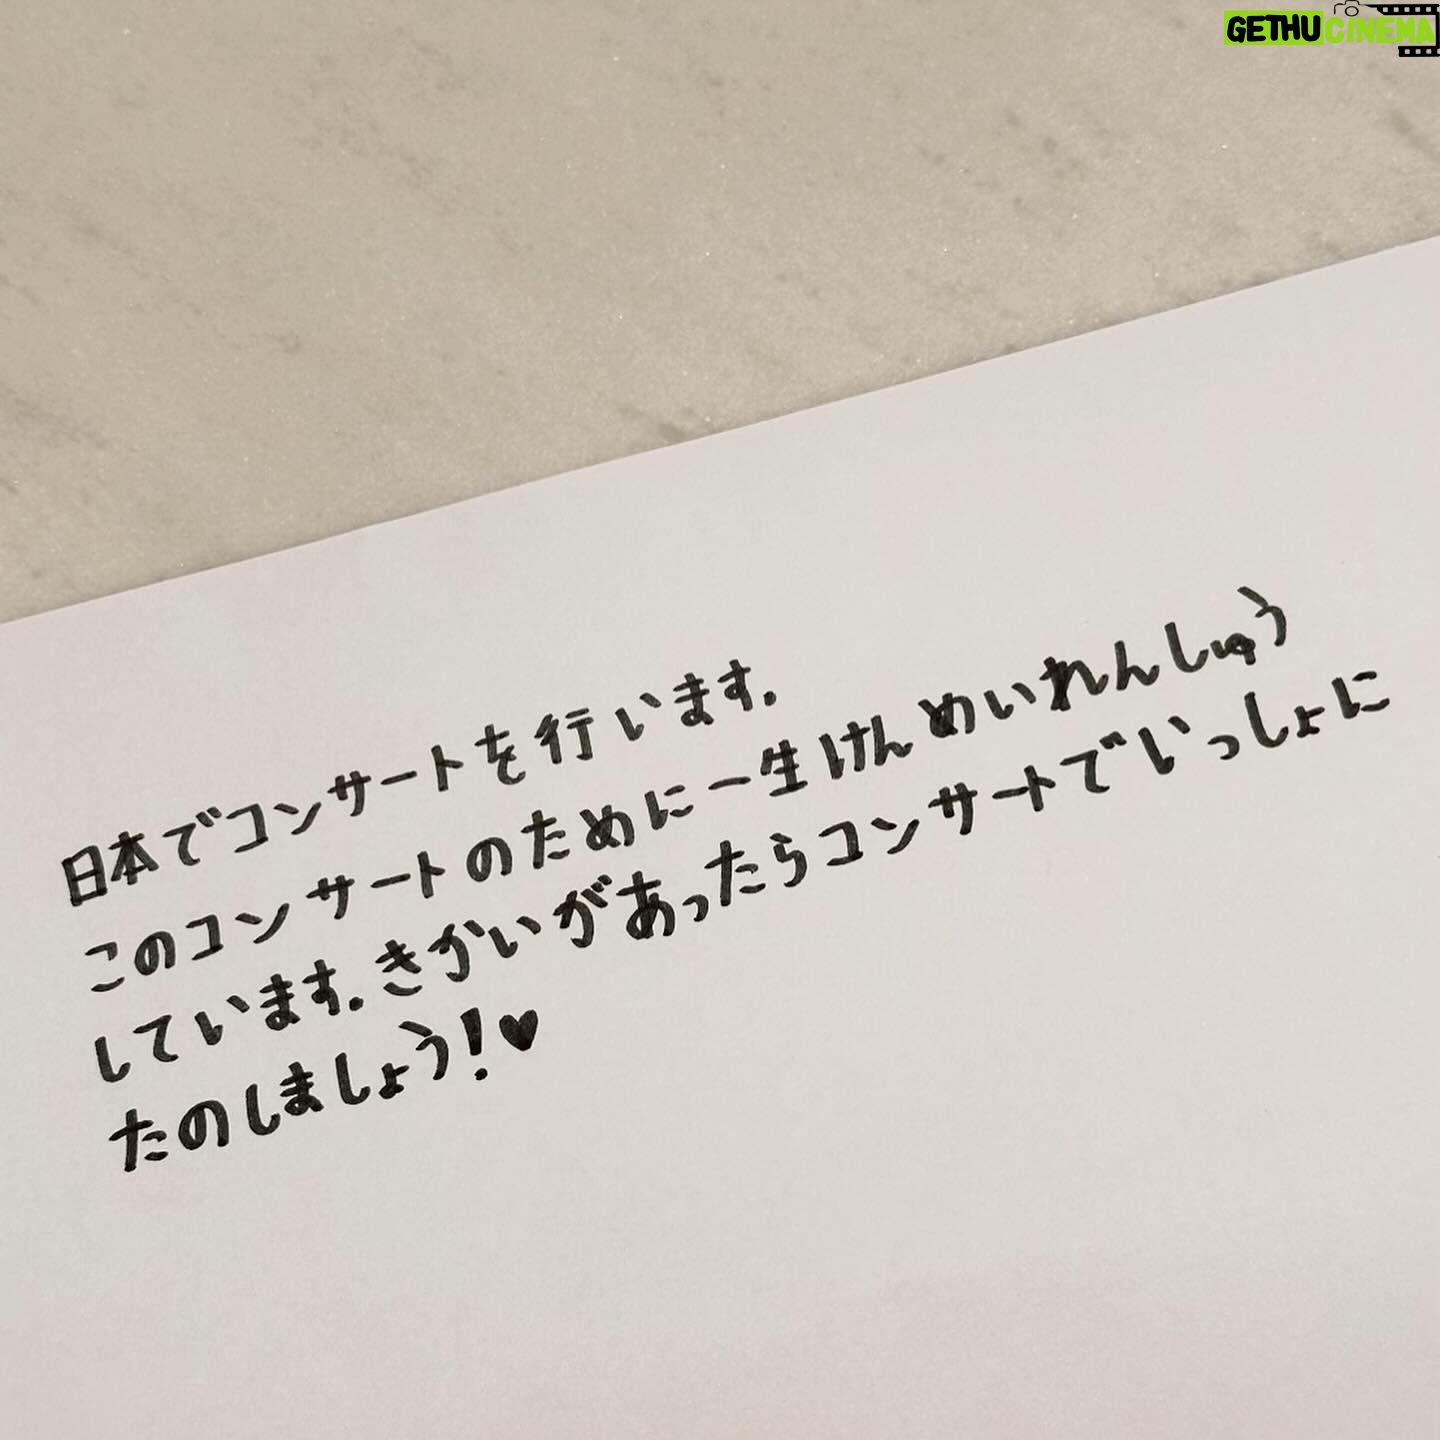 GETHUCINEMA
日本でコンサートを行います.
このコンサートのために一生けんめいれんしゅう
しています.きかいがあったらコンサートでいっしょに
たのしましょう!♥